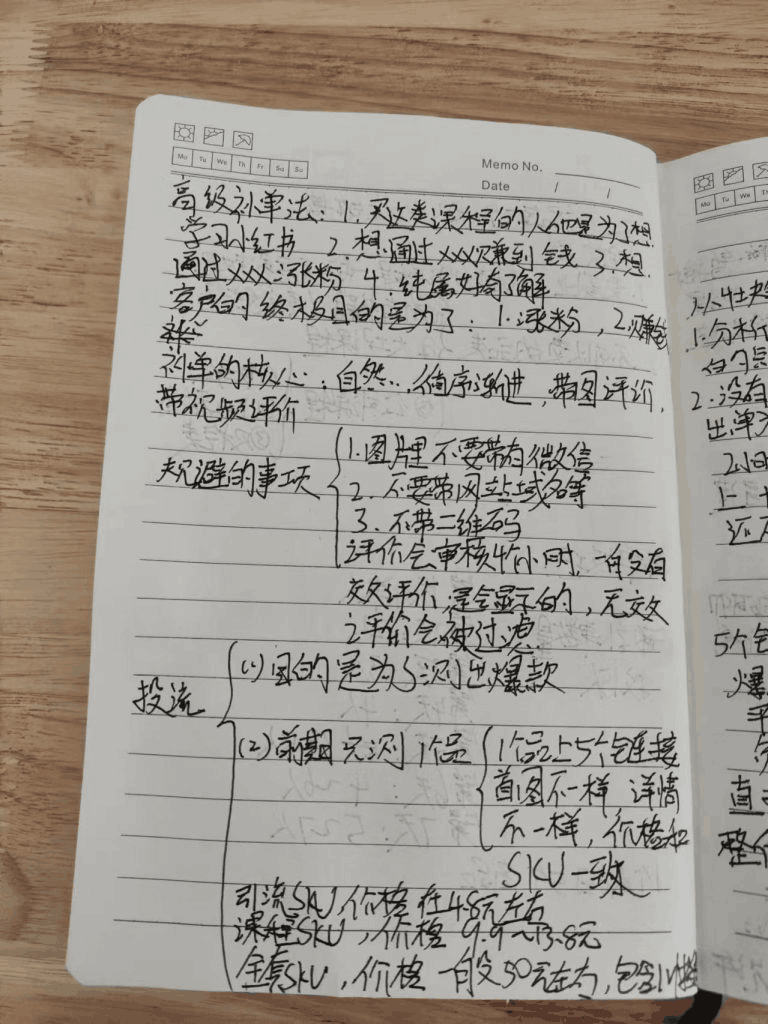 Memo No.
Date / /
Mo Tu We Th Fr Sa Su
高级补单法：1. 买这类课程的人他是为了想
学习小红书 2. 想通过xxx赚到钱 3. 想
通过xxx涨粉 4. 纯属好奇了解
客户的终极目的是为了：1. 涨粉，2. 赚钱
补单的核心：自然，循序渐进，带图评价，
带视频评价
规避的事项
1. 图片里不要带有微信
2. 不要带网站域名等
3. 不带二维码
评价会审核4个小时，一般有
效评价，是会显示的，无效
评价会被过滤
投流
(1) 目的是为了测出爆款
(2) 前期只测1个品
1个品上5个链接
首图不一样 详情
不一样，价格和
SKU一致
引流SKU，价格在4.8元左右
课程SKU，价格9.9~13.8元
全套SKU，价格一般50元左右，包含
Mo Tu We Th
1. 分析
2. 没有
出单
5个
爆
平
直
整个